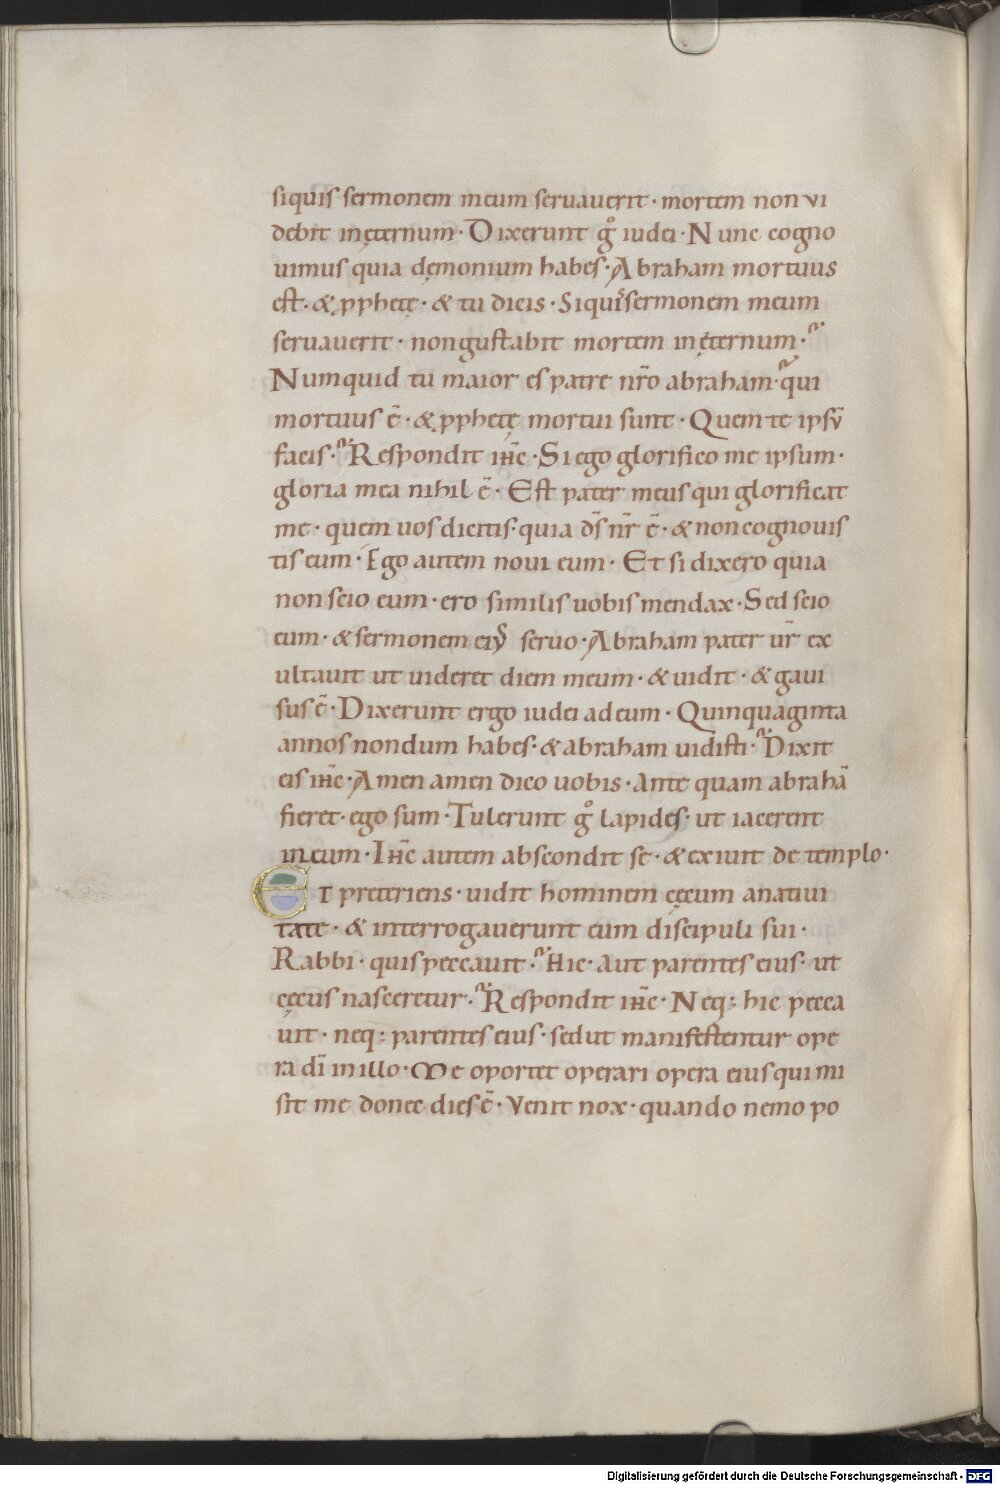 siquis sermonem meum seruauerit· mortem non vi
debit in ęternum· Dixerunt gͦ iudei· Nunc cogno
uimus quia dęmonium habes· Abraham mortuus
est· & ꝓphetę· & tu dicis· Siquis sermonem meum
seruauerit· non gustabit mortem in ęternum·
Numquid tu maior es patre nr̄o abraham· qui
mortuus ē· & ꝓphetę mortui sunt· Quem te ipsū
facis· Respondit ih̄c· Si ego glorifico me ipsum·
gloria mea nihil ē· Est pater meus qui glorificat
me· quem uos dicitis· quia ds̄ nr̄ ē· & non cognouis
tis eum· Ego autem noui eum· Et si dixero quia
non scio eum· ero similis uobis mendax· Sed scio
eum· & sermonem eiꝰ seruo· Abraham pater ur̄ ex
ultauit ut uideret diem meum· & uidit· & gaui
sus ē· Dixerunt ergo iudei ad eum· Quinquaginta
annos nondum habes· & abraham uidisti· Dixit
eis ih̄c· Amen amen dico uobis· Ante quam abrahā
fieret· ego sum· Tulerunt gͦ lapides· ut iacerent
in eum· Ih̄c autem abscondit se· & exiuit de templo·
Et preteriens· uidit hominem cęcum a natiui
tate· & interrogauerunt eum discipuli sui·
Rabbi· quis peccauit· Hic· aut parentes eius· ut
cęcus nasceretur· Respondit ih̄c· Neq; hic pecca
uit· neq; parentes eius· sed ut manifestentur ope
ra dī in illo· Me oportet operari opera eius qui mi
sit me donec dies ē· Venit nox· quando nemo po
Digitalisierung gefördert durch die Deutsche Forschungsgemeinschaft - DFG